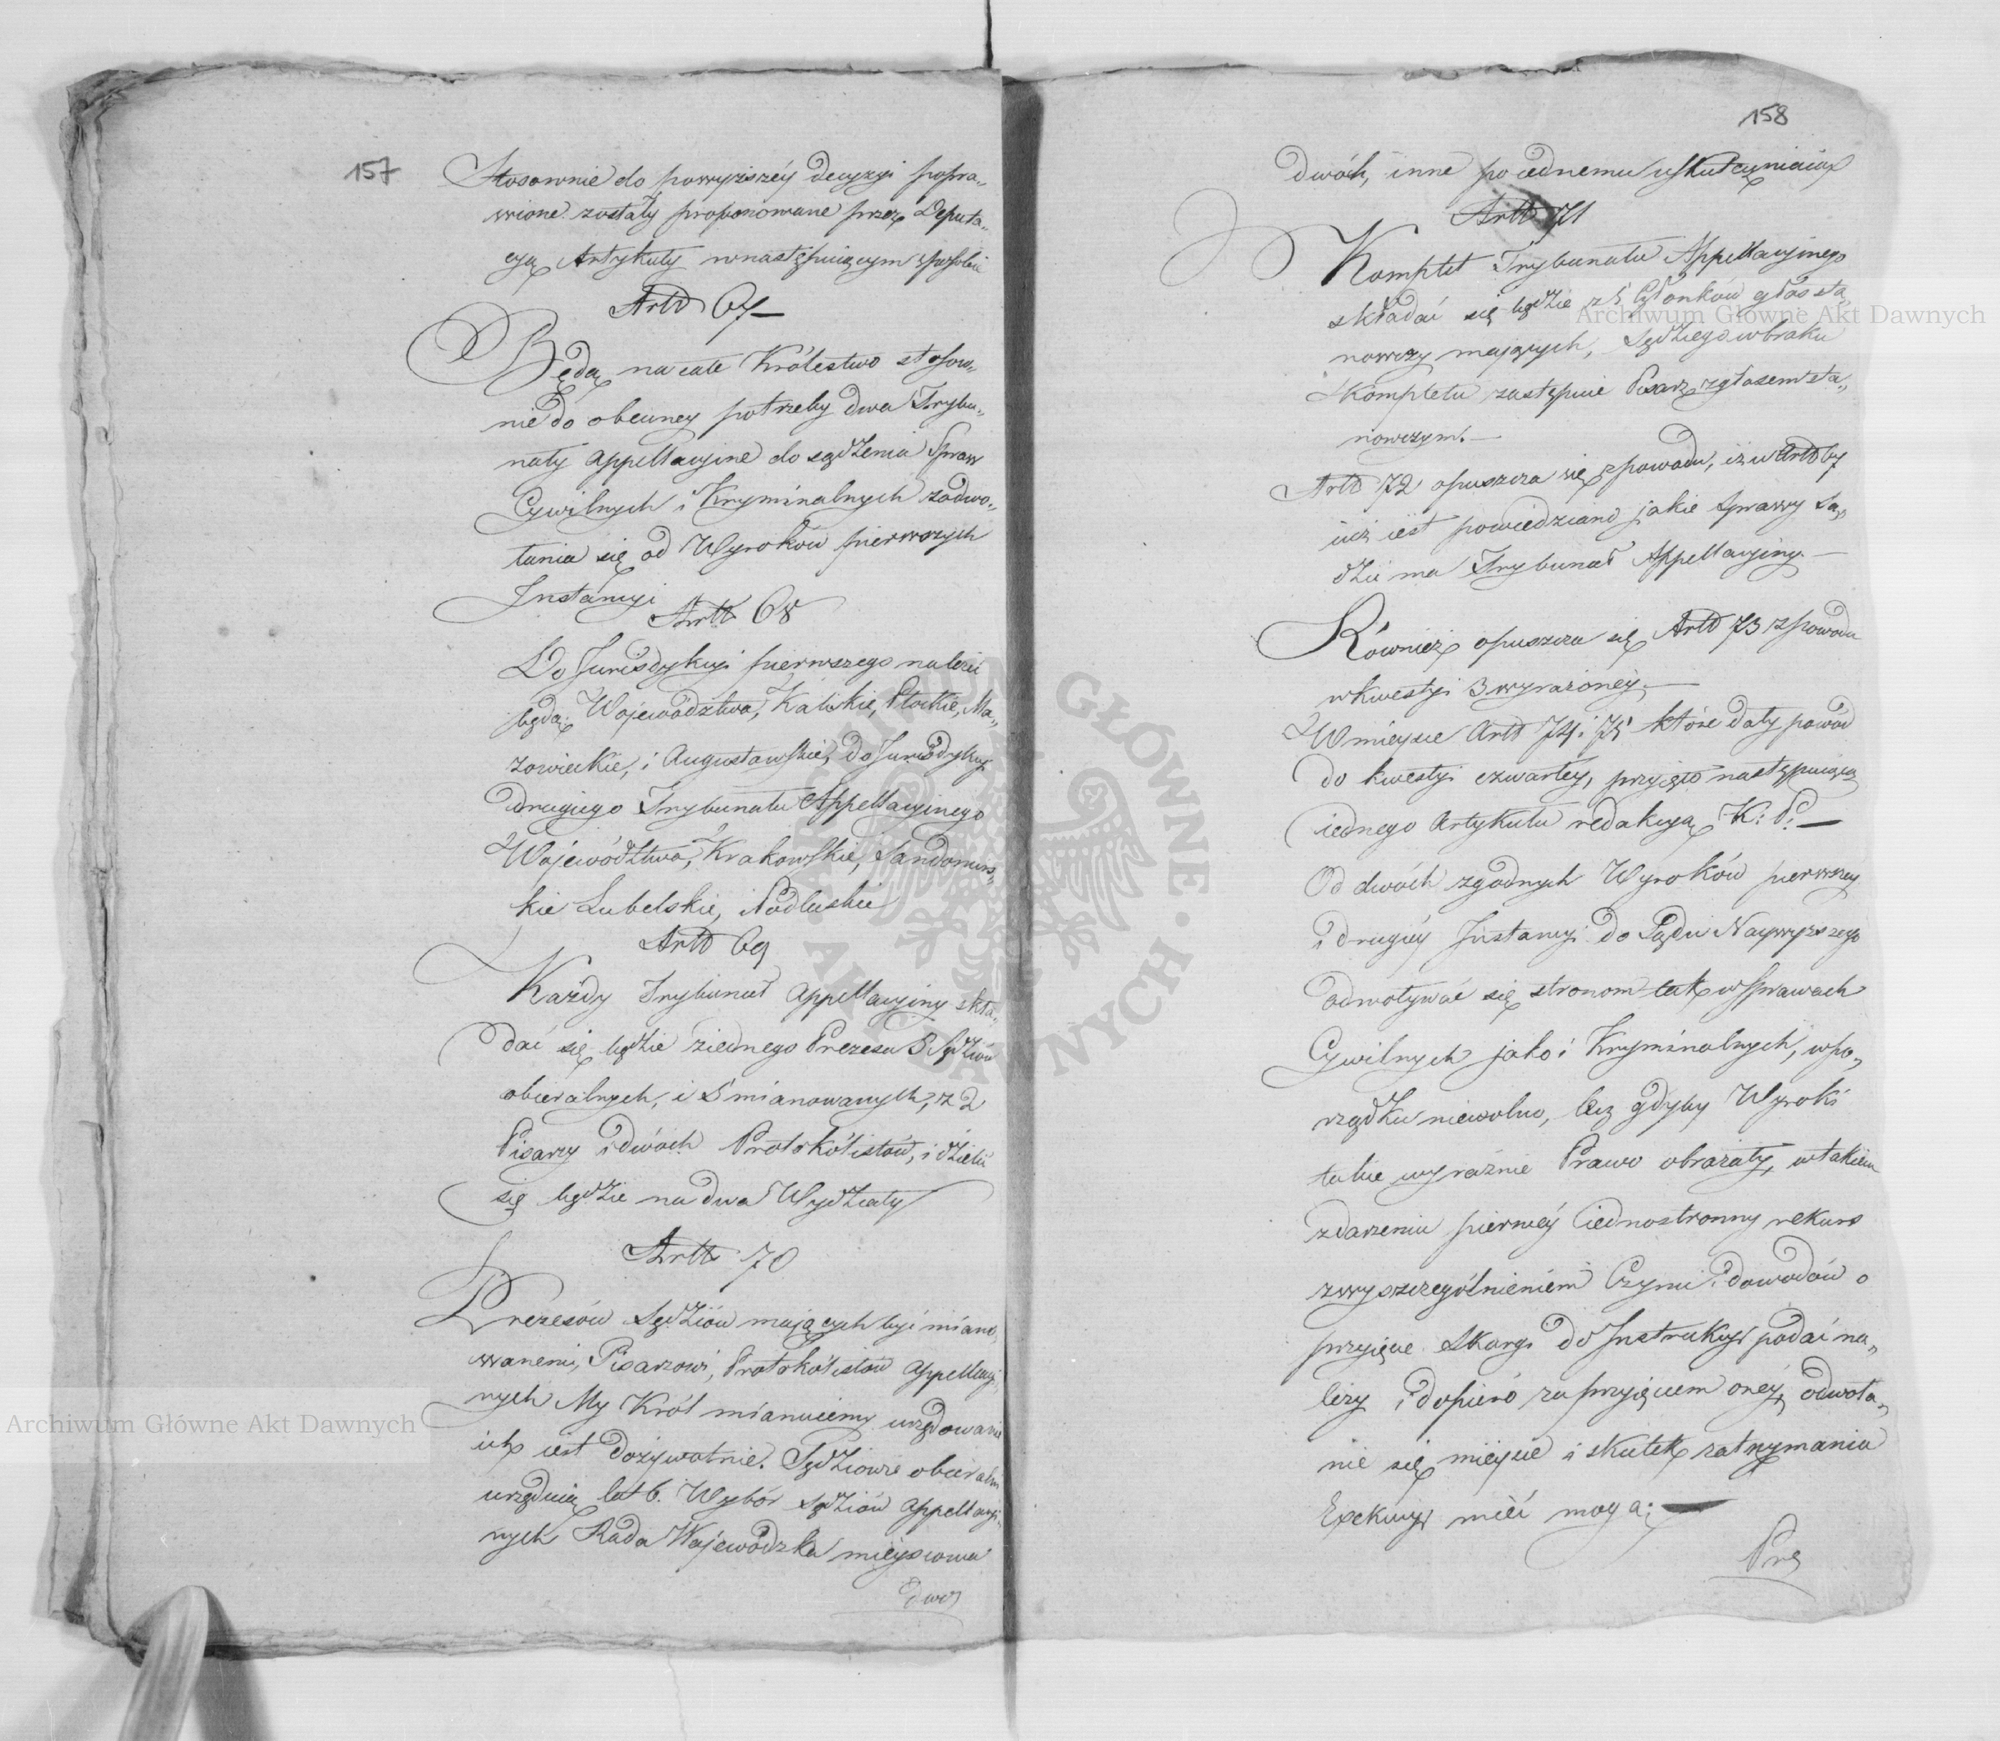 157
Stosownie do powyższéy decyzyi popra„
wione zostały proponowane przez Deputa„
cyą Artykuły w następuiącym sposobie
Artt 67
Będą na całe Królestwo stosow„
nie do obecney potrzeby dwa Trybu„
nały Appellacyine do sądzenia Spraw
Cywilnych i Kryminalnych z odwo„
łania się od Wyroków pierwszych
Instancyi
Artt 68
Do Jurisdykcyi pierwszego należeć
będą Województwa, Kaliskie, Płockie, Ma„
zowieckie, i Augustowskie, do Jurisdykcyi
drugiego Trybunału Appellacyinego
Województwa, Krakowskie, Sandomirs„
kie Lubelskie, Podlaskie
Artt 69
Każdy Trybunał Appellacyiny skła„
dać się będzie z iednego Prezesa 5 Sędziów
obieralnych, i 5 mianowanych, z 2
Pisarzy i dwóch Protokólistów, i dzielić
się będzie na dwa Wydziały
Artt 70
Prezesów Sędziów maiących być miano„
wanemi, Pisarzów, Protokólistów Appellacyi„
nych My Król mianuiemy urzędowanie
ich iest dożywotnie. Sędziowie obieralni
urzęduią lat 6. Wybór Sędziów Appellacyi„
nych Rada Wojewódzka mieyscowa
dwó
158
dwóch, inne po iednemu uskuteczniaią
Artt 71
Komplet Trybunału Appellacyinego
składać się będzie z 5 Członków głos sta„
nowczy mających, Sędziego w braku
kompletu zastępuie Pisarz z głosem sta„
nowczym. —
Artt 72 opuszcza się z powodu, iż w Artt 67
iuż iest powiedziano jakie Sprawy Są„
dzić ma Trybunał Appellacyiny. —
Również opuszcza się Artt 73 z powodu
w kwestyi 3 wyrażonéy —
W mieysce Artt 74 i 75 które dały powód
do kwestyi czwartéy, przyjęto następuiącą
iednego Artykułu redakcyą K: P: —
Od dwóch zgodnych Wyroków pierwszey
i drugiéy Instancyi do Sądu Naywyższego
odwoływać się stronom tak w Sprawach
Cywilnych jako i Kryminalnych, w po„
rządku niewolno, lecz gdyby Wyroki
takie wyraźnie Prawo obrażały, w takiem
zdarzeniu pierwéy iednostronny rekurs
z wyszczególnieniem Czynu i dowodów o
przyięcie Skargi do Instrukcyi podać na„
leży i dopiéro za przyięciem onéy, odwoła„
nie się mieysce i skutek zatrzymania
Exekucyi mieć mogą; —
Prz
Archiwum Główne Akt Dawnych
Archiwum Główne Akt Dawnych
ARCHIWUM GŁÓWNE AKT DAWNYCH